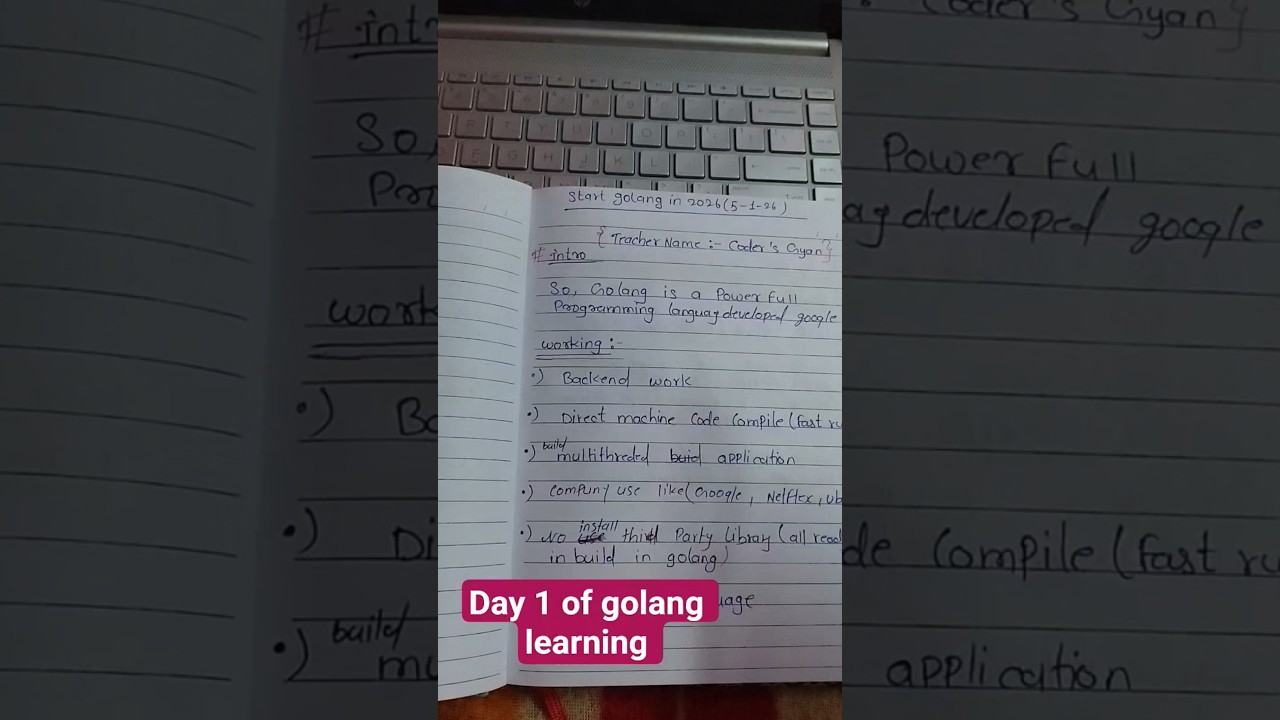 Start golang in 2026(5-1-26)
{ Teacher Name :- Coder's Gyan}
# intro
So, Golang is a Power full
Programming languag developed google
working :-
•) Backend work
•) Direct machine code compile (fast ru
•) build multithreded buid application
•) Compuny use like (Google, Nelflex, ub
•) No install third Party Libray (all read
in build in golang)
uage
Day 1 of golang
learning